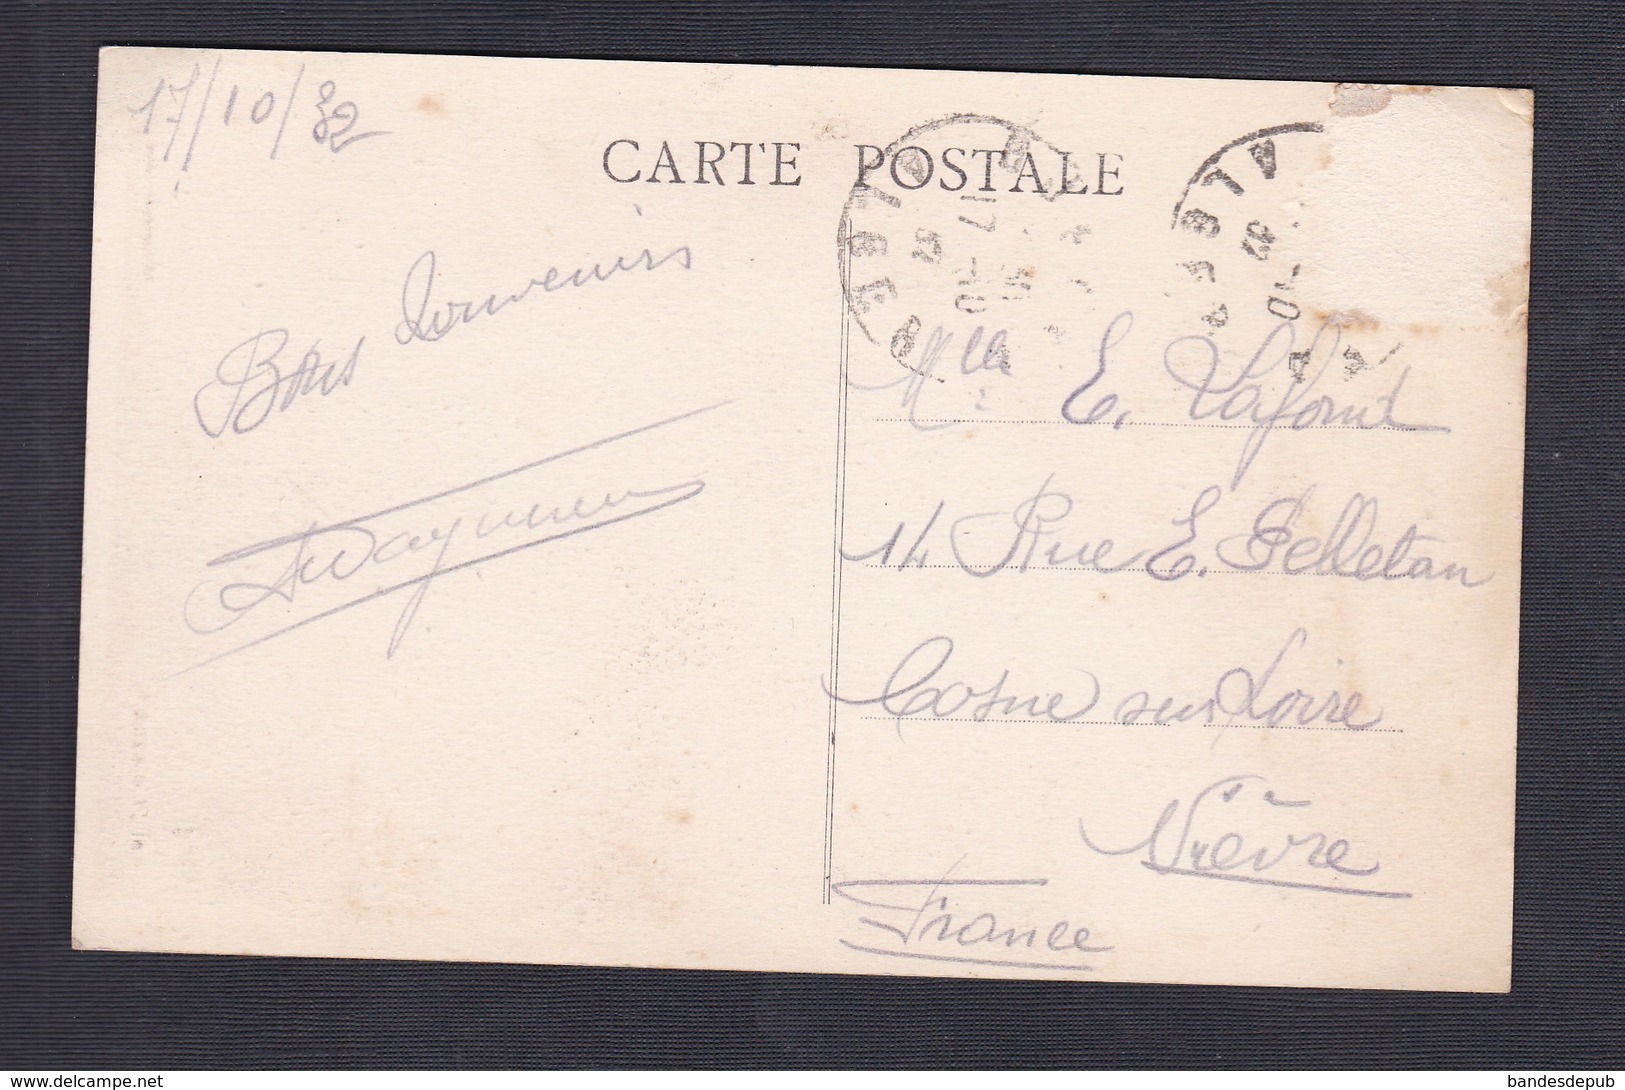 17/10/32
CARTE POSTALE
ALGER
17
10
32
ALGER
10
32
Bons Souvenirs
Mlle E. Lafond
14 Rue E. Pelletan
Cosne sur Loire
Nièvre
France
www.delcampe.net
bandesdepub